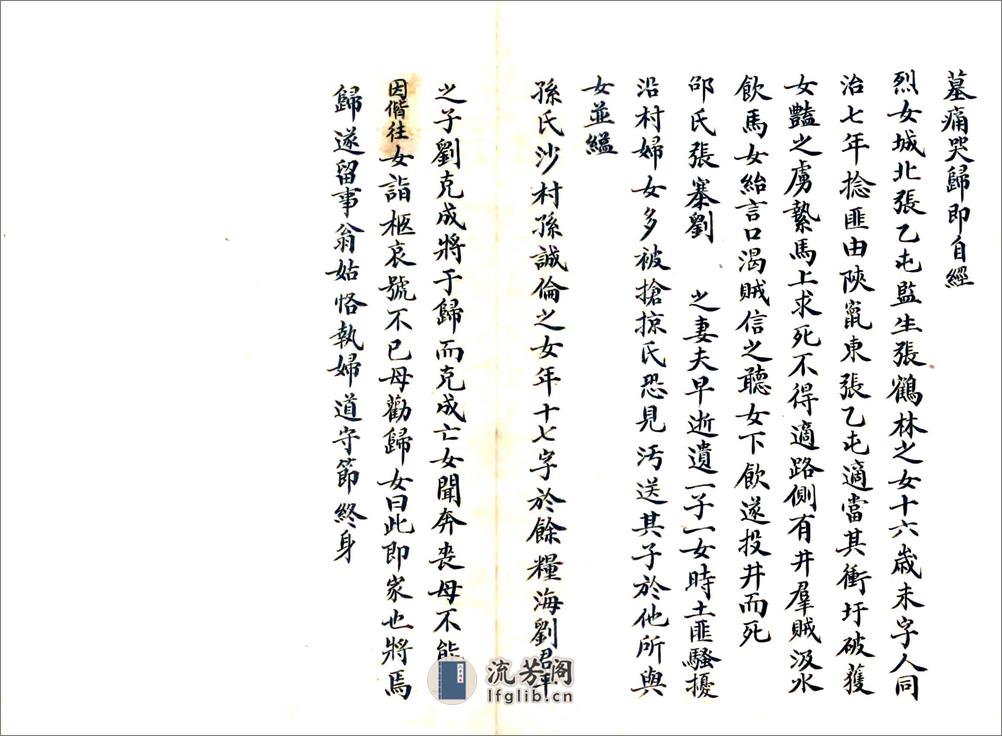 墓痛哭歸即自經
烈女城北張乙屯監生張鶴林之女十六歲未字人同
治七年捻匪由陝竄東張乙屯適當其衝圩破獲
女豔之虜縶馬上求死不得適路側有井羣賊汲水
飲馬女紿言口渴賊信之聽女下飲遂投井而死
邵氏張寨劉 之妻夫早逝遺一子一女時土匪騷擾
沿村婦女多被搶掠氏恐見汚送其子於他所與
女並縊
孫氏沙村孫誠倫之女年十七字於餘糧海劉君
之子劉克成將于歸而克成亡女聞奔喪母不能
因偕往女詣柩哀號不已母勸歸女曰此即家也將焉
歸遂留事翁姑恪執婦道守節終身
流芳阁
lfglib.cn